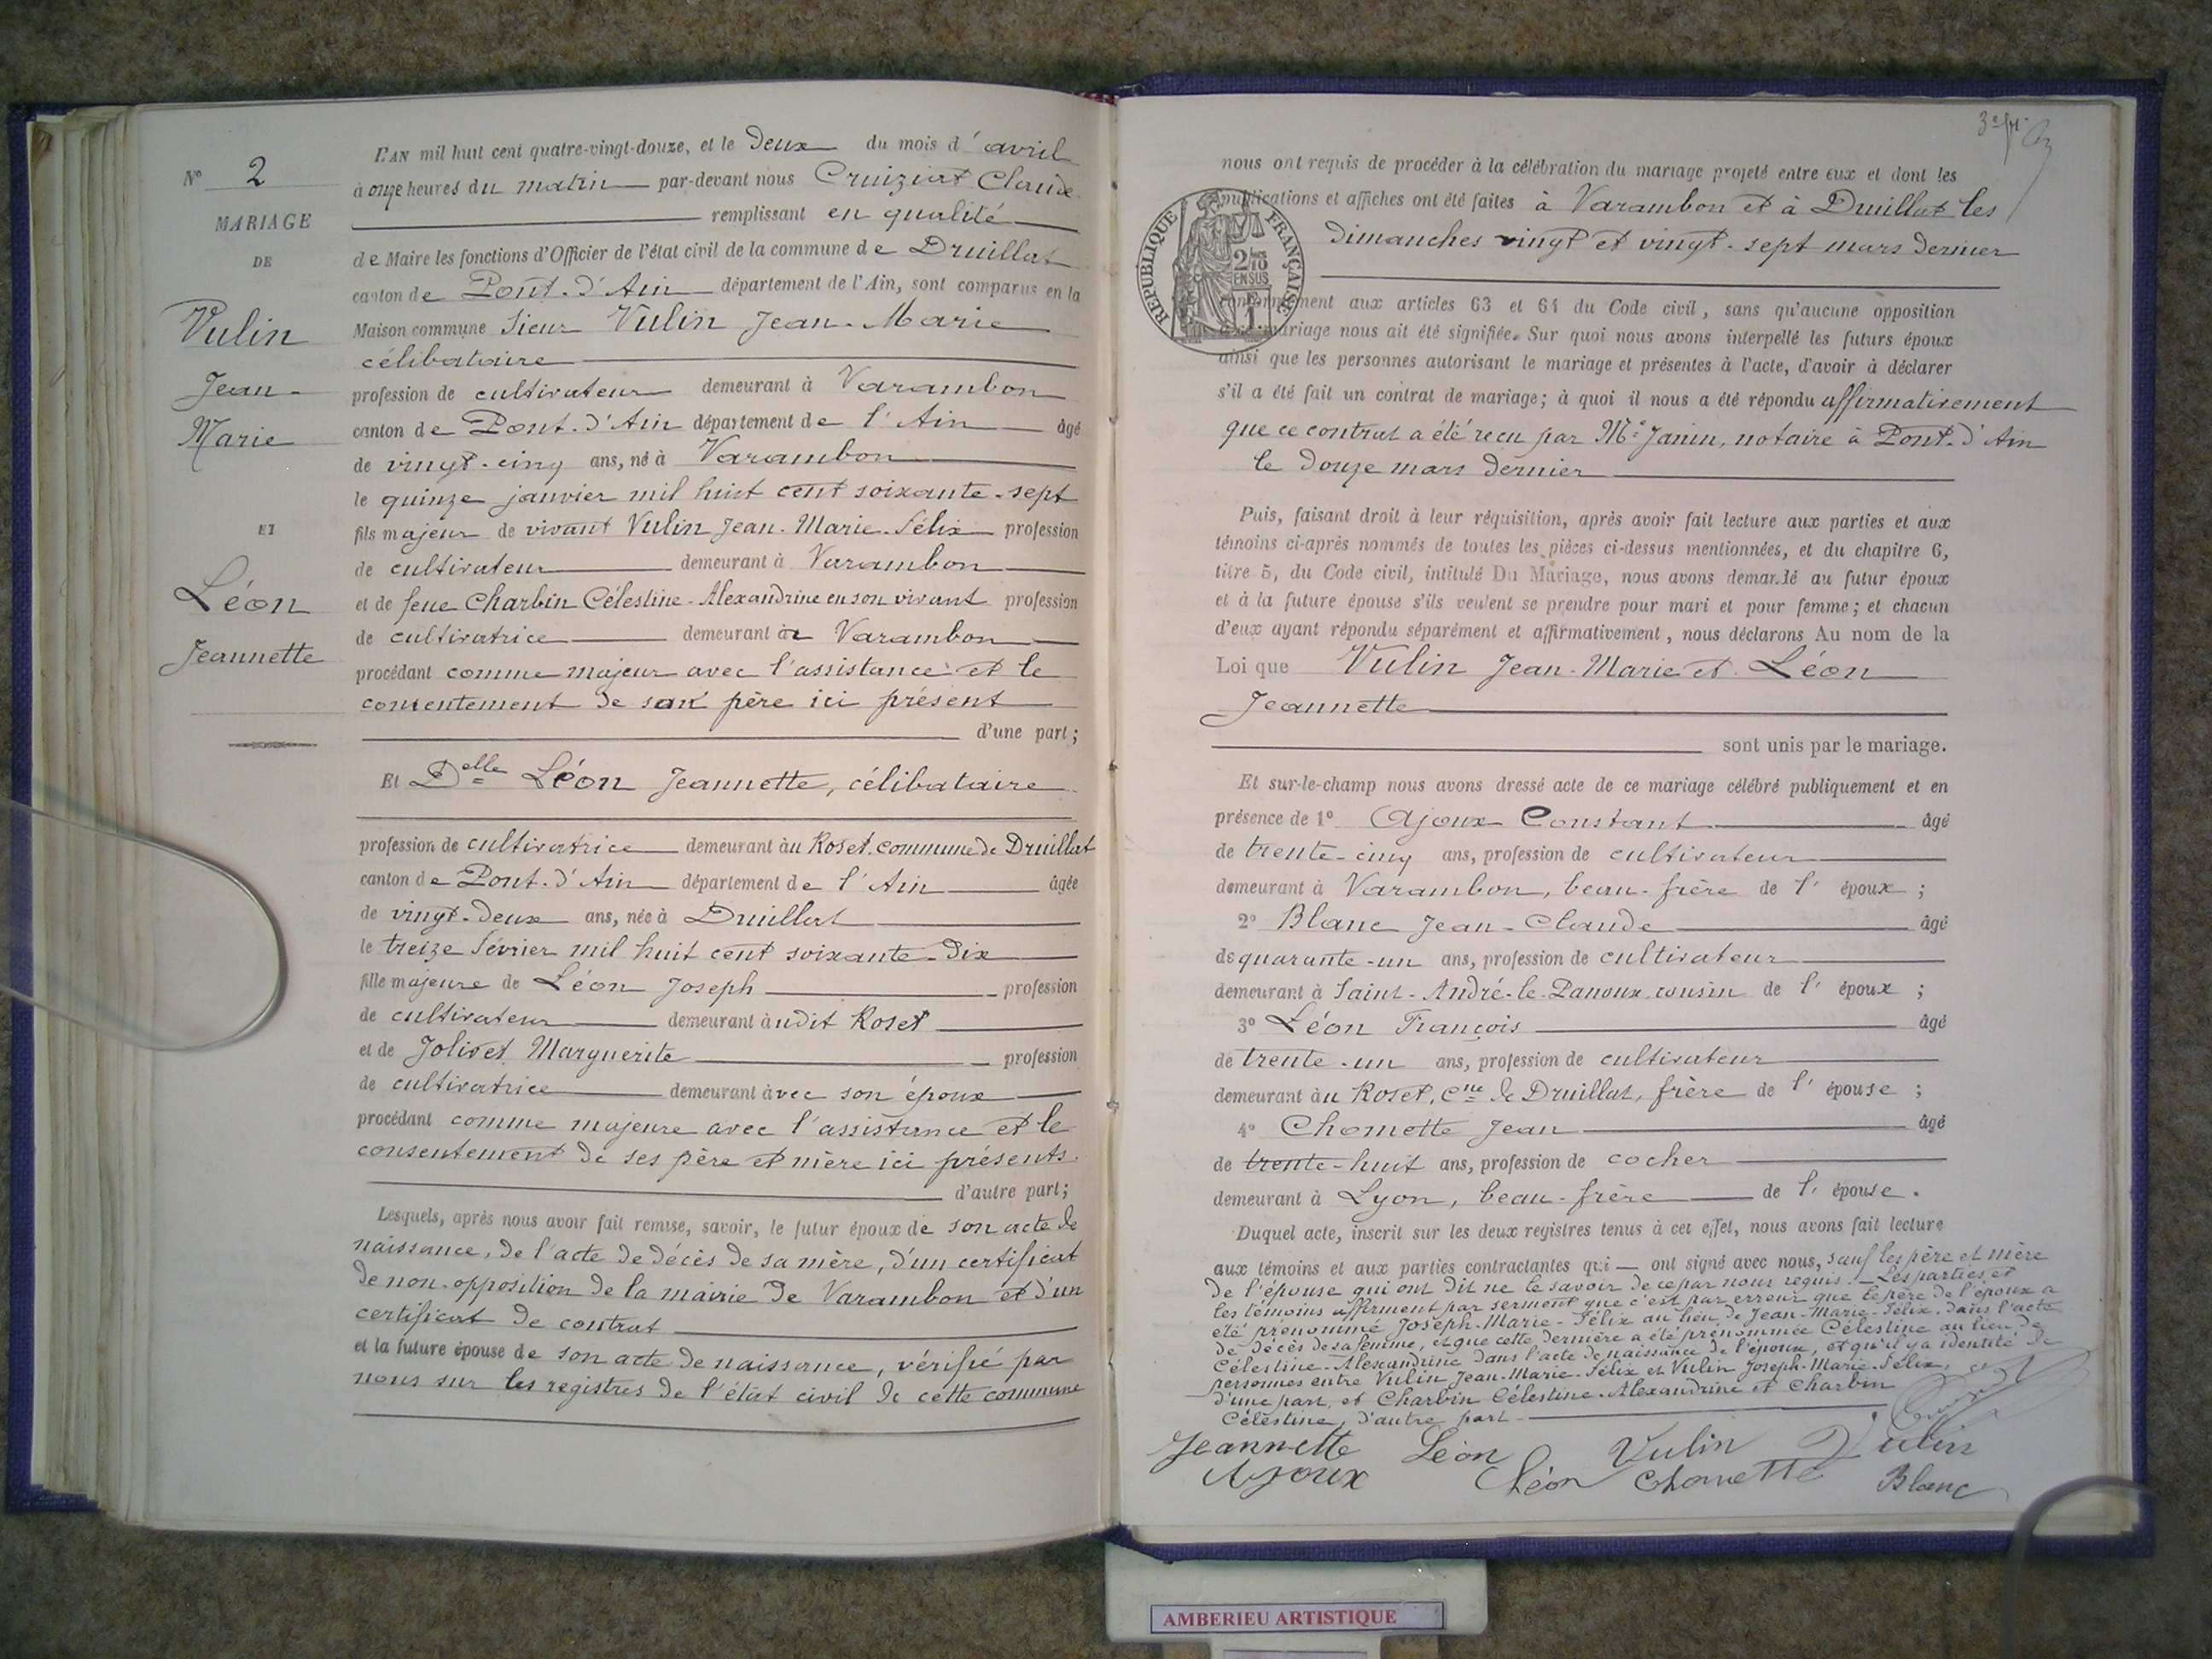 N° 2
MARIAGE
DE
Vulin
Jean-
Marie
ET
Léon
Jeannette
L'AN mil huit cent quatre-vingt-douze, et le deux du mois d'avril
à onze heures du matin par-devant nous Cruiziat Claude
remplissant en qualité
de Maire les fonctions d'Officier de l'état civil de la commune de Druillat
canton de Pont-d'Ain département de l'Ain, sont comparus en la
Maison commune Sieur Vulin Jean-Marie
célibataire
profession de cultivateur demeurant à Varambon
canton de Pont-d'Ain département de l'Ain âgé
de vingt-cinq ans, né à Varambon
le quinze janvier mil huit cent soixante-sept
fils majeur de vivant Vulin Jean-Marie-Félix profession
de cultivateur demeurant à Varambon
et de feue Charbin Célestine-Alexandrine en son vivant profession
de cultivatrice demeurant à Varambon
procédant comme majeur avec l'assistance et le
consentement de son père ici présent
d'une part;
Et Delle Léon Jeannette, célibataire
profession de cultivatrice demeurant au Roset, commune de Druillat
canton de Pont-d'Ain département de l'Ain âgée
de vingt-deux ans, née à Druillat
le treize février mil huit cent soixante-dix
fille majeure de Léon Joseph profession
de cultivateur demeurant audit Roset
et de Jolivet Marguerite profession
de cultivatrice demeurant avec son époux
procédant comme majeure avec l'assistance et le
consentement de ses père et mère ici présents.
d'autre part;
Lesquels, après nous avoir fait remise, savoir, le futur époux de son acte de
naissance, de l'acte de décès de sa mère, d'un certificat
de non-opposition de la mairie de Varambon et d'un
certificat de contrat
et la future épouse de son acte de naissance, vérifié par
nous sur les registres de l'état civil de cette commune
nous ont requis de procéder à la célébration du mariage projeté entre eux et dont les
publications et affiches ont été faites à Varambon et à Druillat les
dimanches vingt et vingt-sept mars dernier
RÉPUBLIQUE FRANÇAISE
2/10 EN SUS
conformément aux articles 63 et 64 du Code civil, sans qu'aucune opposition
mariage nous ait été signifiée. Sur quoi nous avons interpellé les futurs époux
ainsi que les personnes autorisant le mariage et présentes à l'acte, d'avoir à déclarer
s'il a été fait un contrat de mariage; à quoi il nous a été répondu affirmativement
que ce contrat a été recu par Me Janin, notaire à Pont-d'Ain
le douze mars dernier
Puis, faisant droit à leur réquisition, après avoir fait lecture aux parties et aux
témoins ci-après nommés de toutes les pièces ci-dessus mentionnées, et du chapitre 6,
titre 5, du Code civil, intitulé Du Mariage, nous avons demandé au futur époux
et à la future épouse s'ils veulent se prendre pour mari et pour femme; et chacun
d'eux ayant répondu séparément et affirmativement, nous déclarons Au nom de la
Loi que Vulin Jean-Marie et Léon
Jeannette
sont unis par le mariage.
Et sur-le-champ nous avons dressé acte de ce mariage célébré publiquement et en
présence de 1° Ajoux Constant âgé
de trente-cinq ans, profession de cultivateur
demeurant à Varambon, beau-frère de l'époux;
2° Blanc Jean-Claude âgé
de quarante-un ans, profession de cultivateur
demeurant à Saint-André-le-Panoux cousin de l'époux;
3° Léon François âgé
de trente-un ans, profession de cultivateur
demeurant au Roset, Cne de Druillat, frère de l'épouse;
4° Chomette Jean âgé
de trente-huit ans, profession de cocher
demeurant à Lyon, beau-frère de l'épouse.
Duquel acte, inscrit sur les deux registres tenus à cet effet, nous avons fait lecture
aux témoins et aux parties contractantes qui ont signé avec nous, sauf les père et mère
de l'épouse qui ont dit ne le savoir de ce par nous requis. — Les parties et
les témoins affirment par serment que c'est par erreur que le père de l'époux a
été prénommé Joseph-Marie-Félix au lieu de Jean-Marie-Félix, dans l'acte
de décès de sa femme, et que cette dernière a été prénommée Célestine au lieu de
Célestine-Alexandrine dans l'acte de naissance de l'époux, et qu'il y a identité de
personnes entre Vulin Jean-Marie-Félix et Vulin Joseph-Marie-Félix,
d'une part, et Charbin Célestine-Alexandrine et Charbin
Célestine, d'autre part
Jeannette Léon Vulin Vulin
Ajoux Léon Chomette Blanc
AMBERIEU ARTISTIQUE